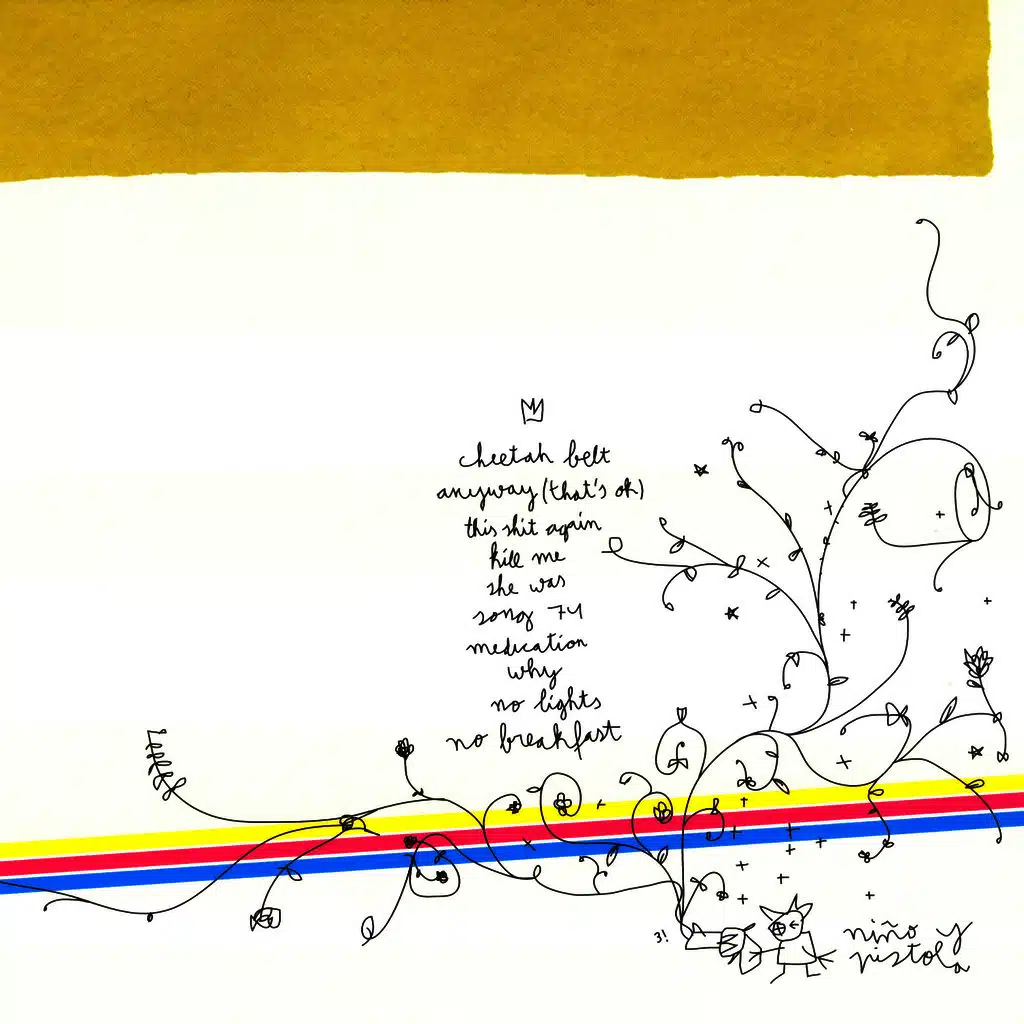 cheetah belt
anyway (that's ok)
this shit again
kill me
she was
song 74
medication
why
no lights
no breakfast
3!
niño y
pistola